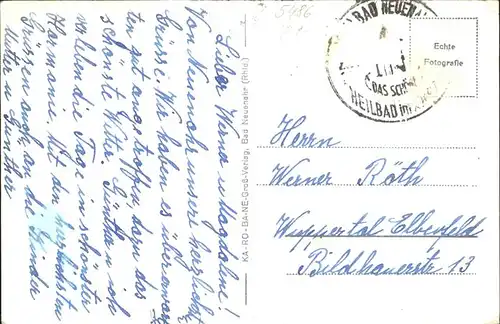 Lieber Werner u. Magdalene!
Von Neuenahr unsere herzlichst
Grüsse. Wir haben es
ten gut angetroffen, dazu das
schönste Wetter. Günther u. ich
verleben die Tage in schönster
Harmonie. Mit den herzlichsten
Grüssen auch an die Kinder
u. Günther
KA-RO-BA-NE-Groß-Verlag, Bad Neuenahr (Rhld.)
5486
BAD NEUENAHR
DAS SCHÖNE
HEILBAD im AHRTAL
Echte
Fotografie
Herrn
Werner Röth
Wuppertal Elberfeld
Bildhauerstr 13